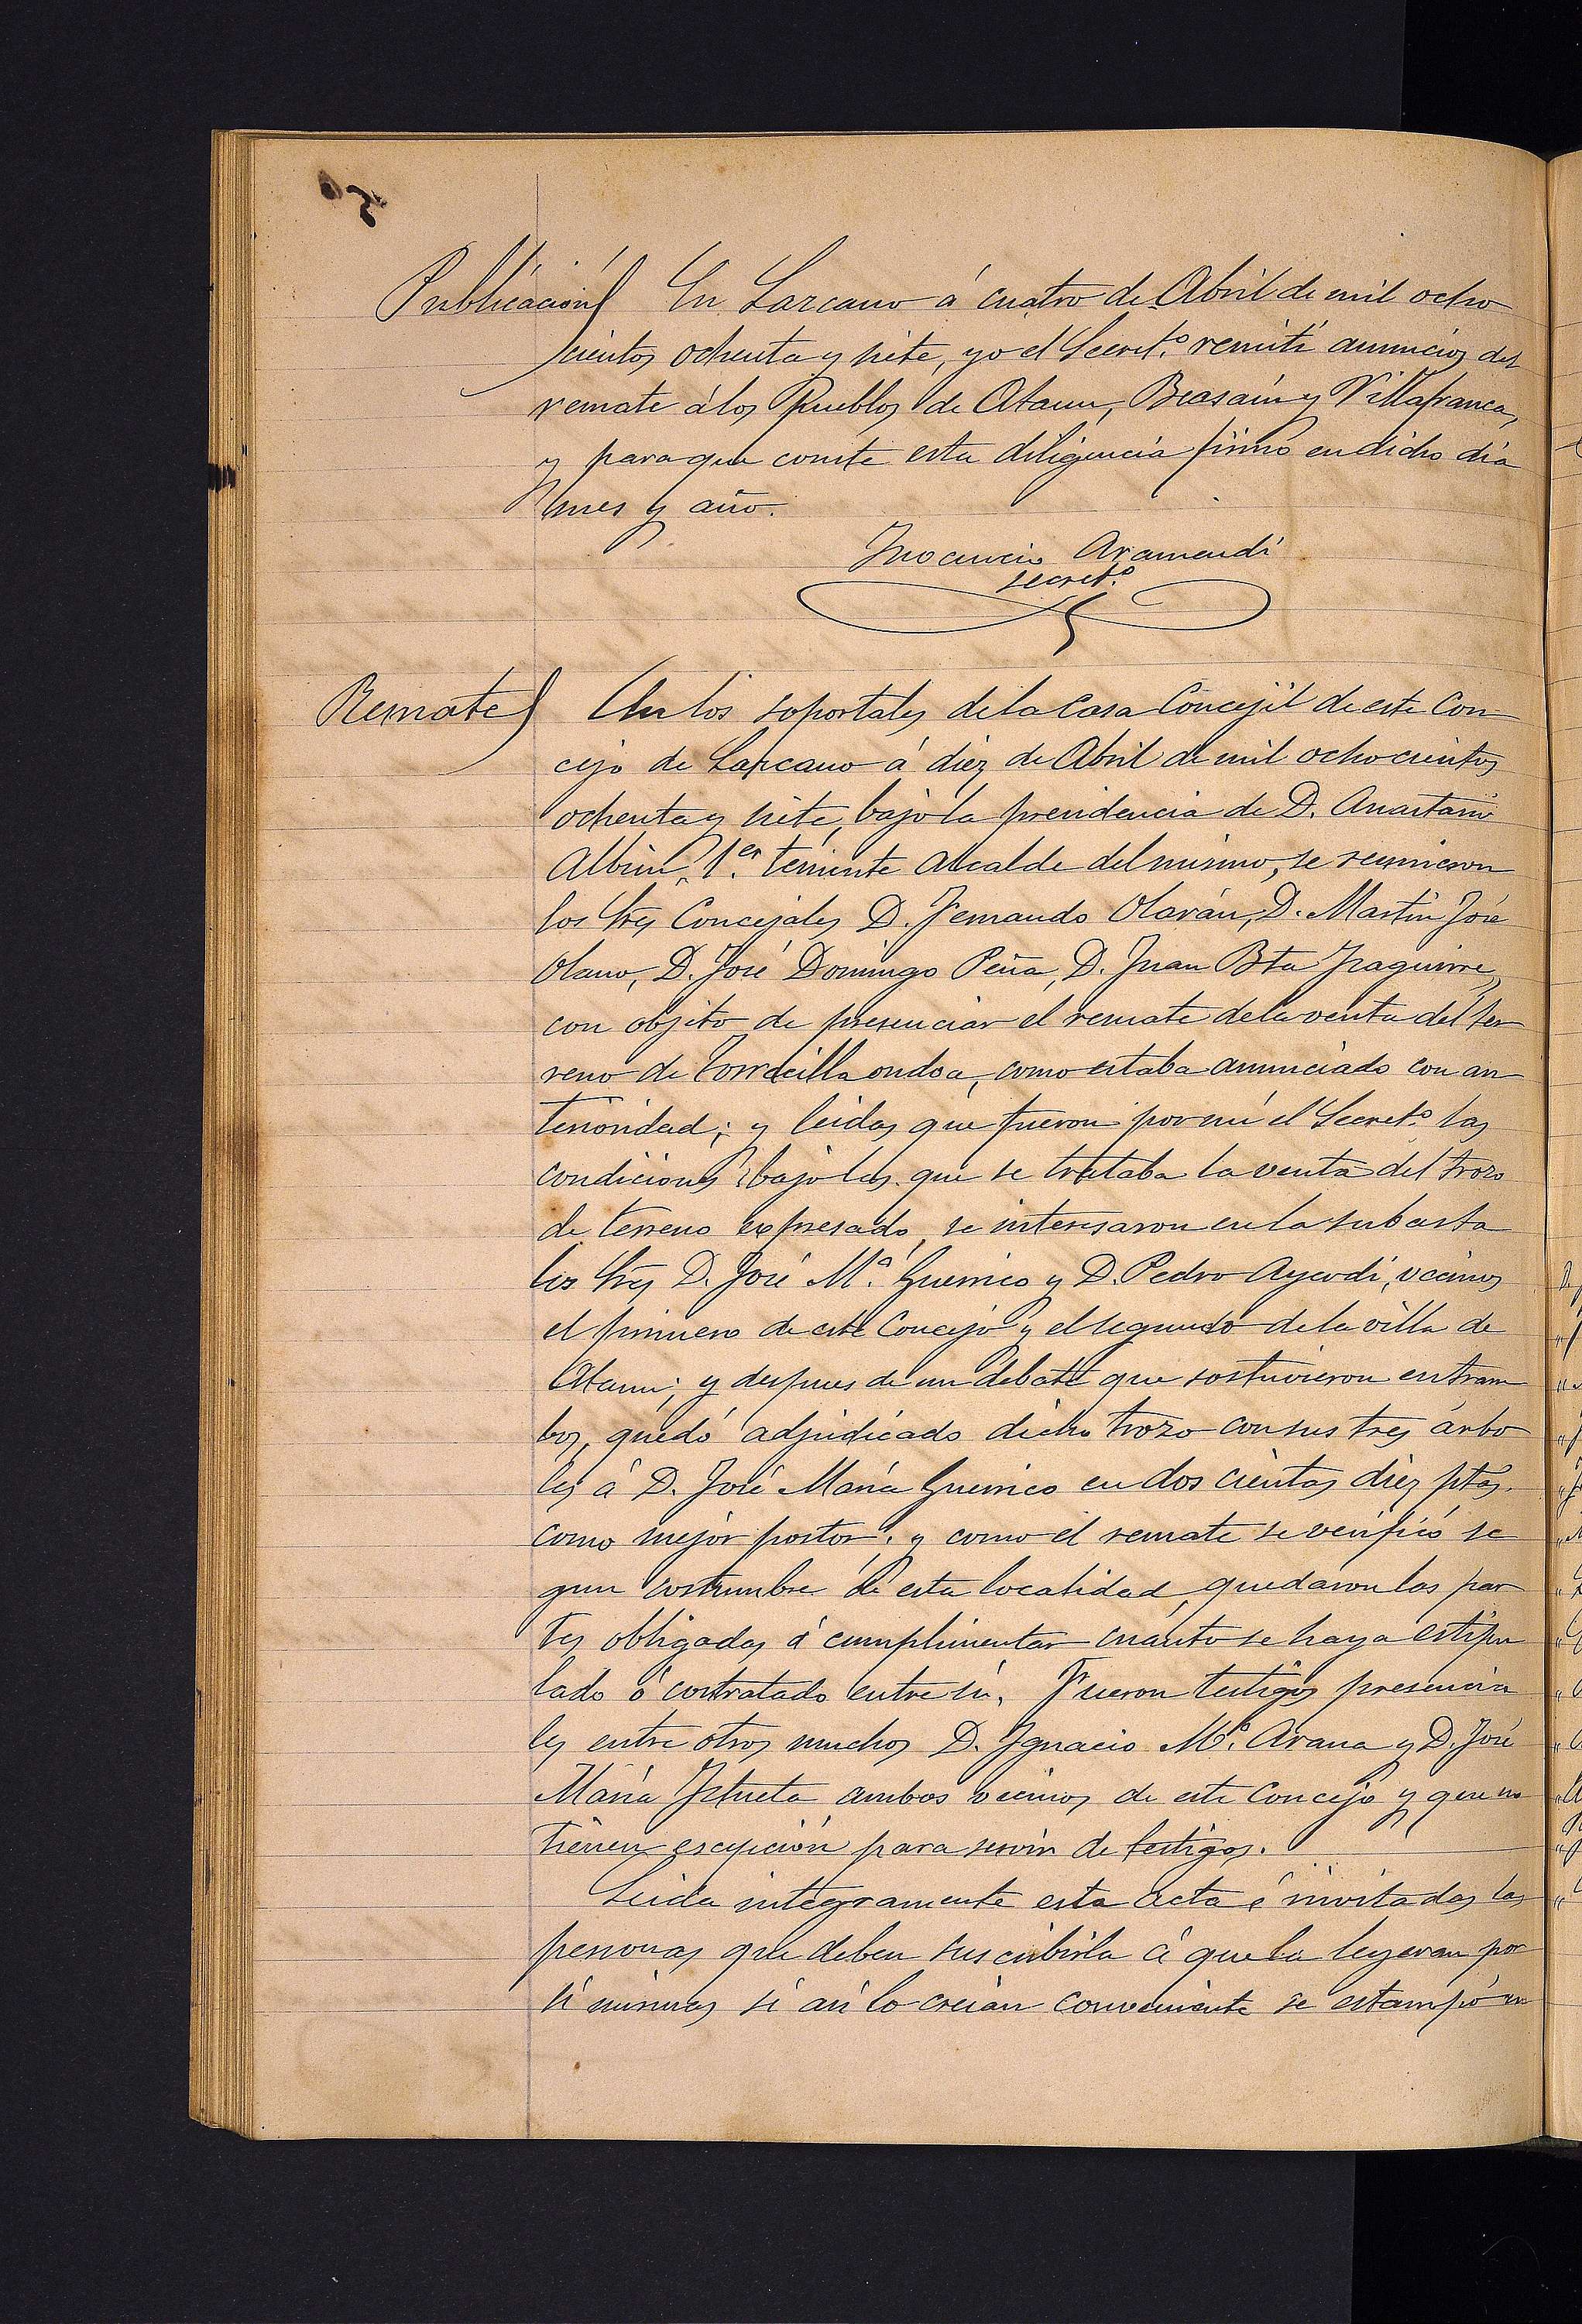 Publicación) En Lazcano á cuatro de Abril de mil ocho
cientos ochenta y siete, yo el Secret.º remití anuncios del
remate á los Pueblos de Ataun, Beasaín y Villafranca,
y para que conste esta diligencia firmo en dicho dia
mes y año.
Inocencio Aramendi
secret.º
Remate) En los soportales de la Casa Concejil de este Con-
cejo de Lazcano á diez de Abril de mil ochocientos
ochenta y siete, bajo la presidencia de D. Anastasio
Albisu, 1.er teniente alcalde del mismo, se reunieron
los Sres Concejales D. Fernando Olarán, D. Martin José
Olano, D. José Domingo Peña, D. Juan Bta Izaguirre,
con objeto de presenciar el remate de la venta del ter
reno de Torrecilla ondoa, como estaba anunciado con an
terioridad; y leidas que fueron por mí el Secret.º las
condiciones bajo las que se trataba la venta del trozo
de terreno expresado, se interesaron en la subasta
los Sres D. José M.ª Guerrico y D. Pedro Ayerdi, vecinos
el primero de este Concejo y el segundo de la villa de
Ataun; y despues de un debate que sostuvieron entram
bos, quedó adjudicado dicho trozo con sus tres árbo
les á D. José María Guerrico en dos cientas diez ptas.
como mejor postor: y como el remate se verificó se
gun costumbre de esta localidad, quedaron las par
tes obligadas á cumplimentar cuanto se haya estipu
lado ó contratado entre sí. Fueron testigos presencia
les entre otros muchos D. Ignacio M.ª Arana y D. José
María Iztueta ambos vecinos de este Concejo y que no
tienen escepción para servir de testigos.
Leida integramente esta acta é invitadas las
personas que deben suscribirla á que la leyeran por
sí mismas si así lo creian conveniente se estampó en